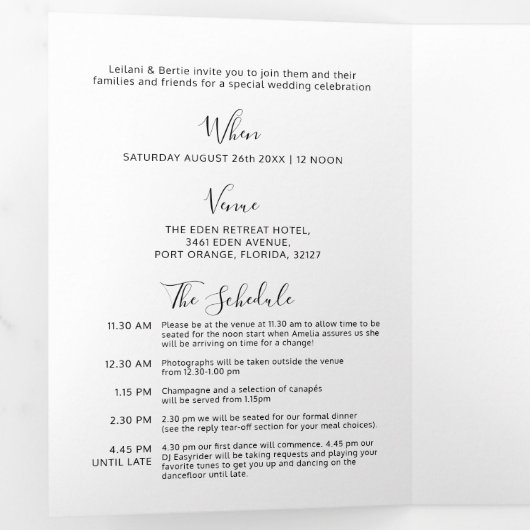 Leilani & Bertie invite you to join them and their
families and friends for a special wedding celebration
When
SATURDAY AUGUST 26th 20XX | 12 NOON
Venue
THE EDEN RETREAT HOTEL,
3461 EDEN AVENUE,
PORT ORANGE, FLORIDA, 32127
The Schedule
11.30 AM Please be at the venue at 11.30 am to allow time to be
seated for the noon start when Amelia assures us she
will be arriving on time for a change!
12.30 AM Photographs will be taken outside the venue
from 12.30-1.00 pm
1.15 PM Champagne and a selection of canapés
will be served from 1.15pm
2.30 PM 2.30 pm we will be seated for our formal dinner
(see the reply tear-off section for your meal choices).
4.45 PM 4.30 pm our first dance will commence. 4.45 pm our
UNTIL LATE DJ Easyrider will be taking requests and playing your
favorite tunes to get you up and dancing on the
dancefloor until late.